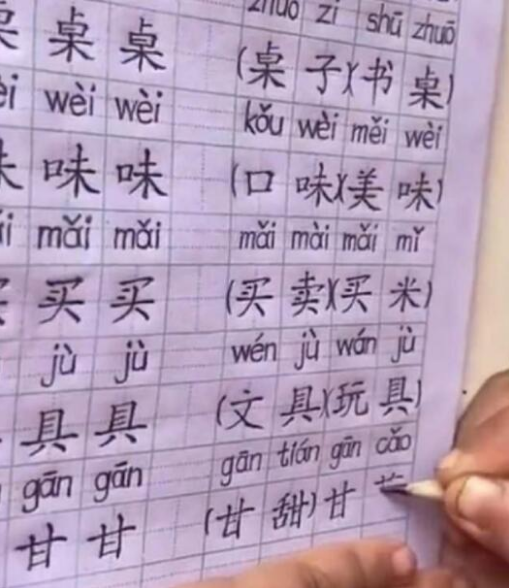 zhuō zi shū zhuō
桌 桌 (桌 子)(书 桌)
wèi wèi kǒu wèi měi wèi
味 味 (口 味)(美 味)
mǎi mǎi mǎi mài mǎi mǐ
买 买 (买 卖)(买 米)
jù jù wén jù wán jù
具 具 (文 具)(玩 具)
gān gān gān tián gān cǎo
甘 甘 (甘 甜)甘